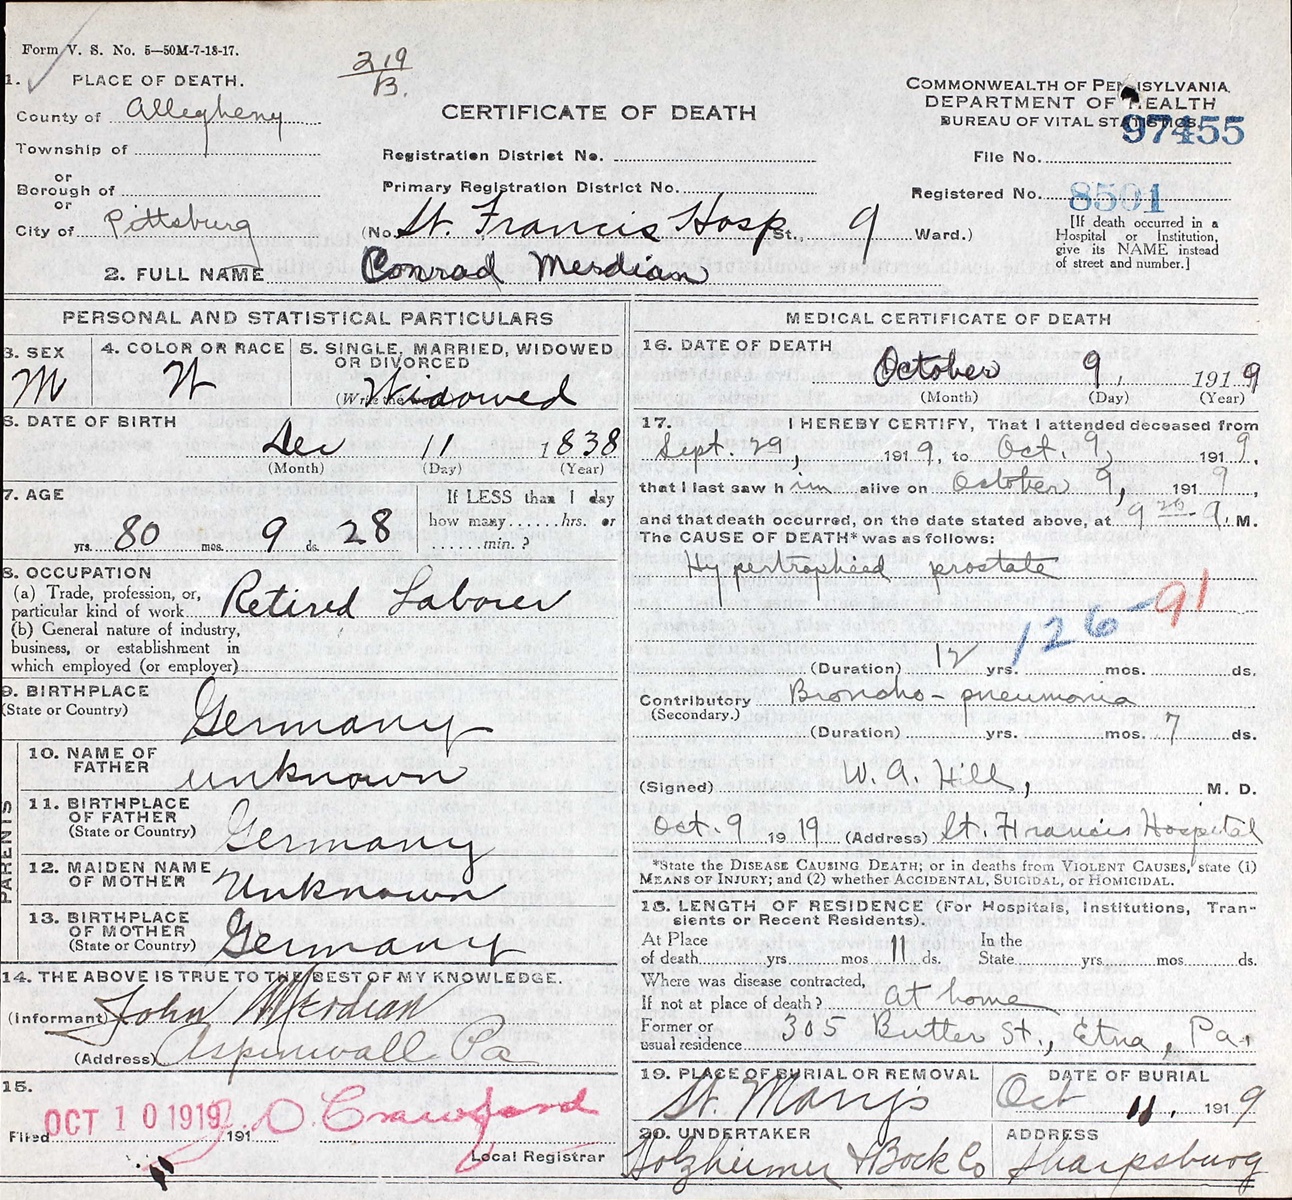 Form V. S. No. 5—50M-7-18-17.
219
B.
1. PLACE OF DEATH.
County of Allegheny
Township of
or
Borough of
or
City of Pittsburg
CERTIFICATE OF DEATH
Registration District No.
Primary Registration District No.
(No. St. Francis Hosp St. 9 Ward.)
COMMONWEALTH OF PENNSYLVANIA.
DEPARTMENT OF HEALTH
BUREAU OF VITAL STATISTICS.
File No. 97455
Registered No. 8501
[If death occurred in a
Hospital or Institution,
give its NAME instead
of street and number.]
2. FULL NAME Conrad Merdian
PERSONAL AND STATISTICAL PARTICULARS
3. SEX
M
4. COLOR OR RACE
W
5. SINGLE, MARRIED, WIDOWED
OR DIVORCED
(Write the word) Widowed
6. DATE OF BIRTH
Dec 11 1838
(Month) (Day) (Year)
7. AGE
80 yrs. 9 mos. 28 ds.
If LESS than 1 day
how many......hrs. or
......min.?
8. OCCUPATION
(a) Trade, profession, or,
particular kind of work Retired Laborer
(b) General nature of industry,
business, or establishment in
which employed (or employer)
9. BIRTHPLACE
(State or Country) Germany
PARENTS
10. NAME OF
FATHER unknown
11. BIRTHPLACE
OF FATHER
(State or Country) Germany
12. MAIDEN NAME
OF MOTHER Unknown
13. BIRTHPLACE
OF MOTHER
(State or Country) Germany
14. THE ABOVE IS TRUE TO THE BEST OF MY KNOWLEDGE.
(Informant) John Merdian
(Address) Aspinwall Pa
15.
Filed OCT 10 1919 191 J. O. Crawford
Local Registrar
MEDICAL CERTIFICATE OF DEATH
16. DATE OF DEATH
October 9, 1919
(Month) (Day) (Year)
17. I HEREBY CERTIFY, That I attended deceased from
Sept. 29, 1919, to Oct. 9, 1919,
that I last saw him alive on October 9, 1919,
and that death occurred, on the date stated above, at 9 20 A. M.
The CAUSE OF DEATH* was as follows:
Hypertrophied prostate
126 91
(Duration) 12 yrs. mos. ds.
Contributory Broncho-pneumonia
(Secondary.)
(Duration) yrs. mos. 7 ds.
(Signed) W. A. Hill, M. D.
Oct. 9 1919 (Address) St. Francis Hospital
*State the DISEASE CAUSING DEATH; or in deaths from VIOLENT CAUSES, state (1)
MEANS OF INJURY; and (2) whether ACCIDENTAL, SUICIDAL, or HOMICIDAL.
18. LENGTH OF RESIDENCE (For Hospitals, Institutions, Tran-
sients or Recent Residents).
At Place In the
of death yrs. mos. 11 ds. State yrs. mos. ds.
Where was disease contracted,
If not at place of death? at home
Former or
usual residence 305 Butler St., Etna, Pa.
19. PLACE OF BURIAL OR REMOVAL
St. Mary's
DATE OF BURIAL
Oct 11, 1919
20. UNDERTAKER
Holzheimer & Bock Co
ADDRESS
Sharpsburg